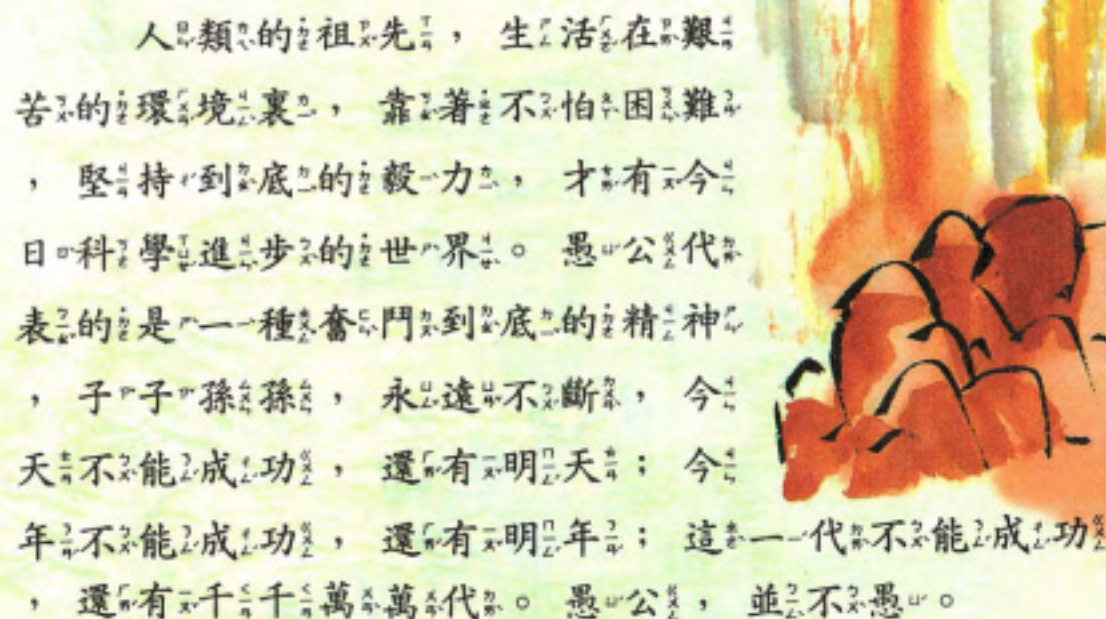 人類的祖先，生活在艱
苦的環境裏，靠著不怕困難
，堅持到底的毅力，才有今
日科學進步的世界。愚公代
表的是一種奮鬥到底的精神
，子子孫孫，永遠不斷，今
天不能成功，還有明天；今
年不能成功，還有明年；這一代不能成功
，還有千千萬萬代。愚公，並不愚。